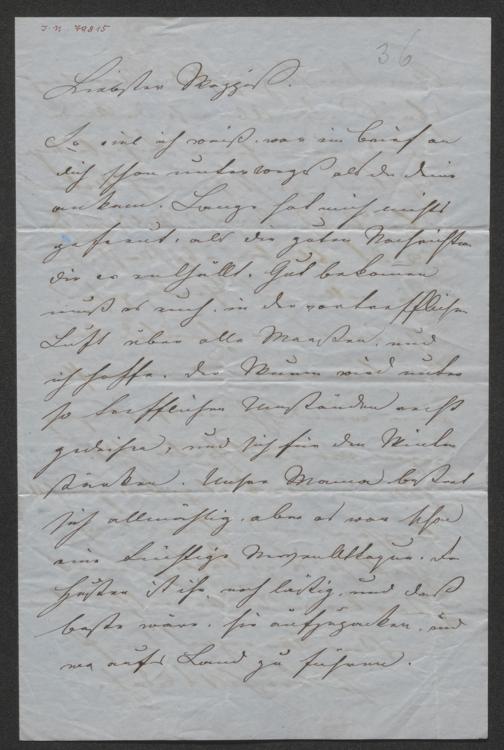 J. N. 79815
36
Liebster
So viel ich weiß, war ein Brief an
dich schon unterwegs als der deine
ankam. Lange hat mich nichts
gefreut, als die guten Nachrichten
die er enthüllt. Gut bekomen
muß es euch, in der vortrefflichen
Luft über alle Maassen, und
ich hoffe, der wird unter
so trefflichen Umständen recht
gedeihen, und sich für den Winter
stärken. Unsre Mama bessert
sich allmählig, aber es war schon
eine tüchtige. Der
Husten ist ihr noch lästig, und das
beste wäre, sie aufzupacken, und
wo aufs Land zu führen.